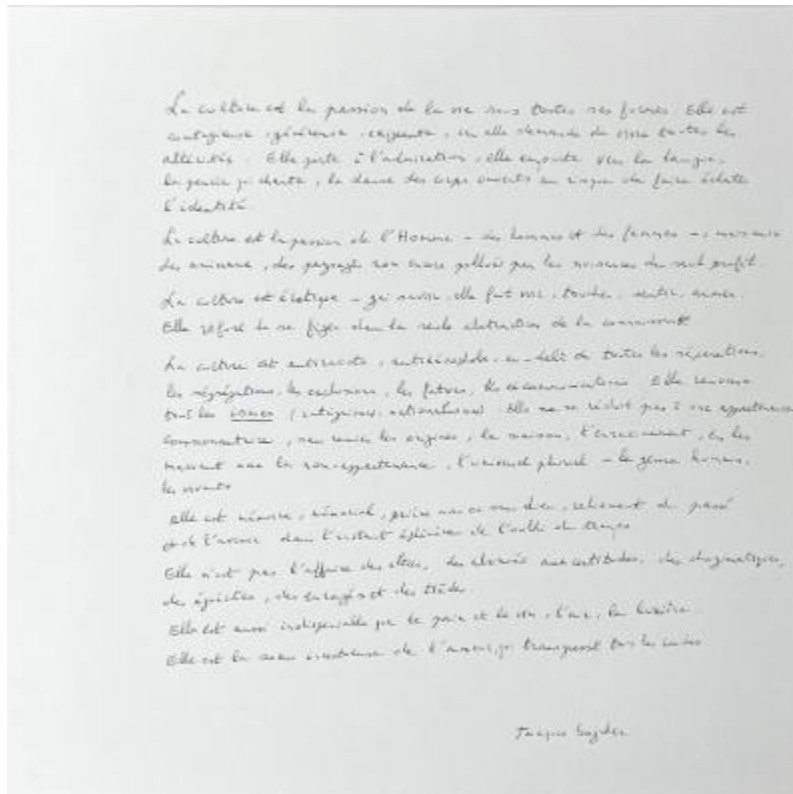 La culture est la passion de la vie sous toutes ses formes. Elle est
contagieuse, généreuse, exigeante, car elle demande de vivre toutes les
altérités. Elle porte à l'admiration, elle emporte vers la langue,
la pensée qui chante, la danse des corps ouverts au risque de faire éclater
l'identité
La culture est la passion de l'Homme – des hommes et des femmes –, mais aussi
des animaux, des paysages non encore pollués par les nuisances du seul profit.
La culture est érotique – gai savoir, elle fait voir, toucher, sentir, aimer.
Elle refuse de se figer dans la seule abstraction de la connaissance
La culture est antiraciste, au-delà de toutes les séparations,
les ségrégations, les exclusions, les fatwas, les excommunications. Elle
tous les ismes (intégrismes, nationalismes). Elle ne se réduit pas à une appartenance
communautaire, sans renier les origines, la maison, l'enracinement, en les
mariant avec la non-appartenance, l'universel pluriel – le genre humain,
les vivants
Elle est mémoire, mémorial, prière avec ou sans dieu, du passé
et de l'avenir dans l'instant éphémère de l'oubli du temps
Elle n'est pas l'affaire des élites, des certitudes, des dogmatiques,
des égoïstes, des enragés et des tièdes.
Elle est aussi indispensable que le pain et le vin, l'air, la lumière
Elle est la sœur de l'amour, qui transgresse tous les
Jacques